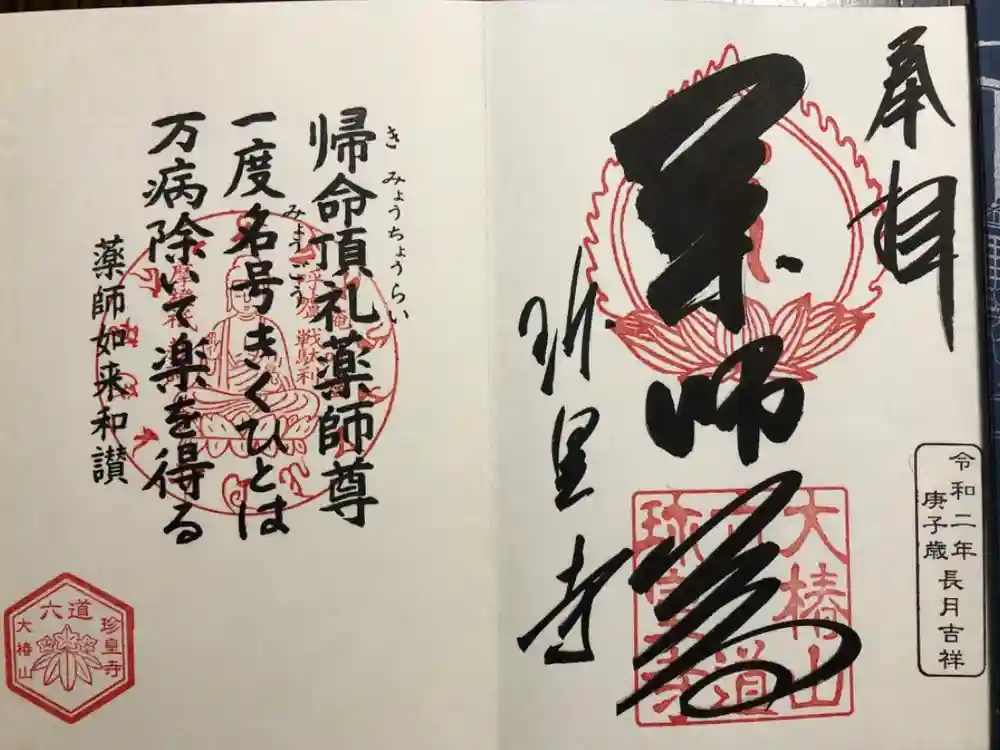 奉拝
薬師尊
珎皇寺
大椿山
六道
珎皇寺
令和二年
庚子歳
長月吉祥
帰命頂礼薬師尊
きみょうちょうらい
一度名号きくひとは
みょうごう
万病除いて楽を得る
薬師如来和讃
六道
珍皇寺
大椿山